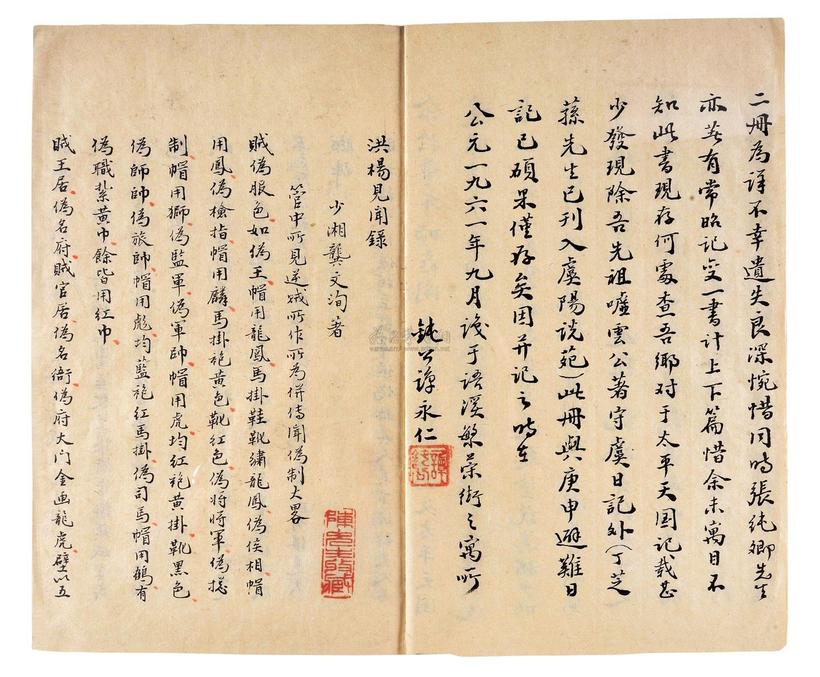 二冊為詳不幸遺失良深惋惜同時張純卿先生
亦著有常昭記变一書計上下篇惜余未寓目不
知此書現存何處查吾鄉对于太平天国記載甚
少發現除吾先祖噓雲公著守虞日記外(丁芝
蓀先生已刊入虞陽说苑)此冊與庚申避難日
記已碩果僅存矣因并記之時在
公元一九六一年九月識于语溪繁荣街之寓所
鈍公譚永仁
洪楊見聞錄
少湘龔文洵著
管中所見逆賊所作所為併傳聞偽制大畧
賊偽服色如偽王帽用龍鳳馬掛鞋靴繡龍鳳偽侯相帽
用鳳偽檢指帽用麟馬掛袍黃色靴紅色偽將軍偽搃
制帽用獅偽監軍偽軍帥帽用虎均紅袍黃掛靴黑色
偽師帥偽旅帥帽用彪均藍袍紅馬掛偽司馬帽用鶴有
偽職紥黃巾餘皆用紅巾
賊王居偽名府賊官居偽名衙偽府大门金画龍虎壁以五